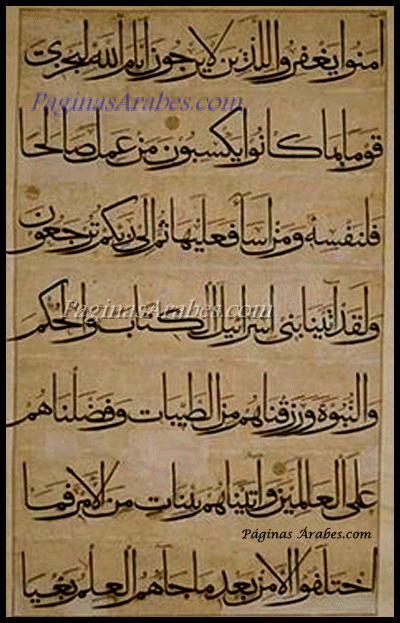 آمنوا يغفروا للذين لا يرجون أيام الله ليجزي
PaginasArabes.com
قوما بما كانوا يكسبون من عمل صالحا
فلنفسه ومن اسأ فعليها ثم الى ربكم ترجعون
PaginasArabes.com
ولقد آتينا بني اسرائيل الكتاب والحكم
والنبوة ورزقناهم من الطيبات وفضلناهم
على العالمين وآتيناهم بينات من الأمر فما
Páginas Arabes.com
اختلفوا الا من بعد ما جأهم العلم بغيا